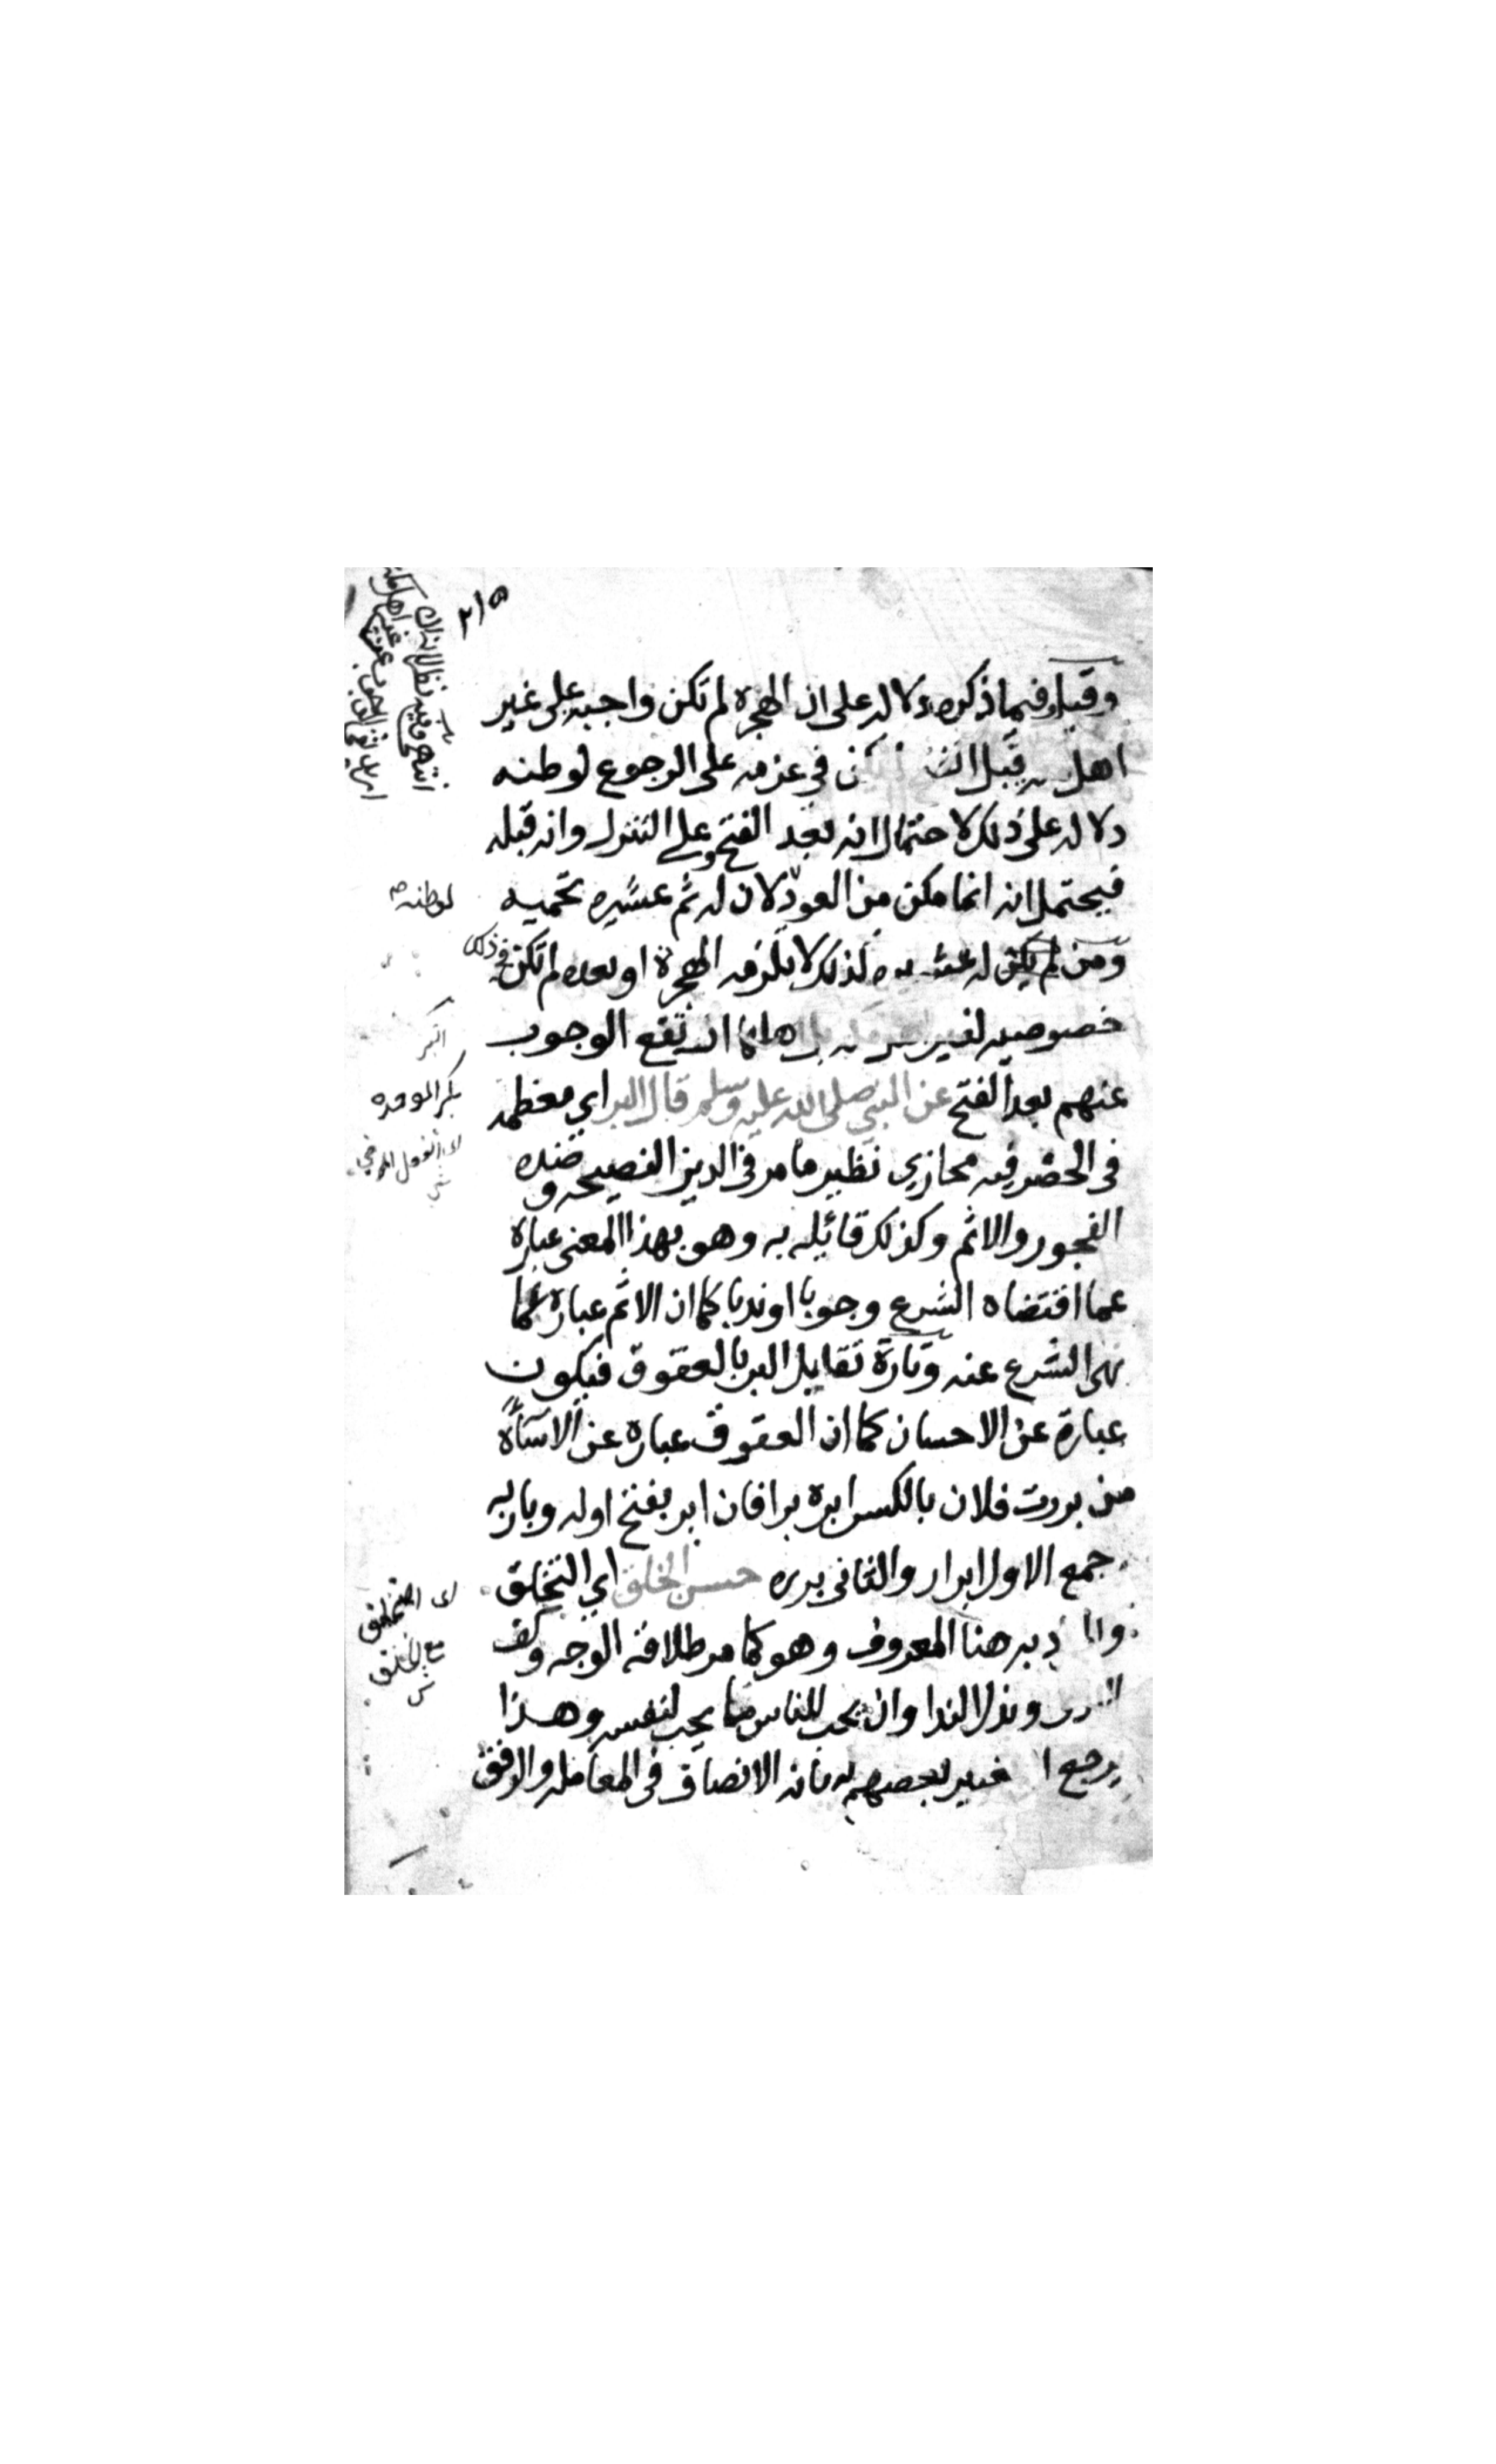 ٢١٥
وقيل وفيما ذكره دلاله على ان الهجرة لم تكن واجبه على غير
اهل قبل في عزمه على الرجوع لوطنه
دلاله على ذلك لاحتمال انه بعد الفتح وعلى التنزل وانه قبله
فيحتمل انه انما مكن من العود لان له ثم عشيره تحميه
ومن لم يكن له كذلك لا يلزمه الهجرة او بعده لم تكن في ذلك
خصوصيه لغير الوجوب
عنهم بعد الفتح عن النبي صلى الله عليه وسلم قال البر اي معظمه
فى الحصر فيه مجازي نظير ما مر في الدين النصيحه وضده
الفجور والاثم وكذلك قابله به وهو بهذا المعنى عبارة
عما اقتضاه الشرع وجوبا او ندبا كما ان الاثم عبارة عما
نهى الشرع عنه وتارة تقابل البر بالعقوق فيكون
عبارة عن الاحسان كما ان العقوق عباره عن الاساءة
من بررت فلان بالكسر ابره برا فان ابر بفتح اوله وبار به
جمع الاول ابرار والثانى برره حسن الخلق اي التخلق
به هنا المعروف وهو كما مر طلاقة الوجه وكف
وبذل الندا وان يحب للناس ما يحب لنفسه وهذا
يرجع بعضهم له بانه الانصاف فى المعامله والرفق
لوطنه
البر
بكسر الموحده
اى التخلق
مع الخلق